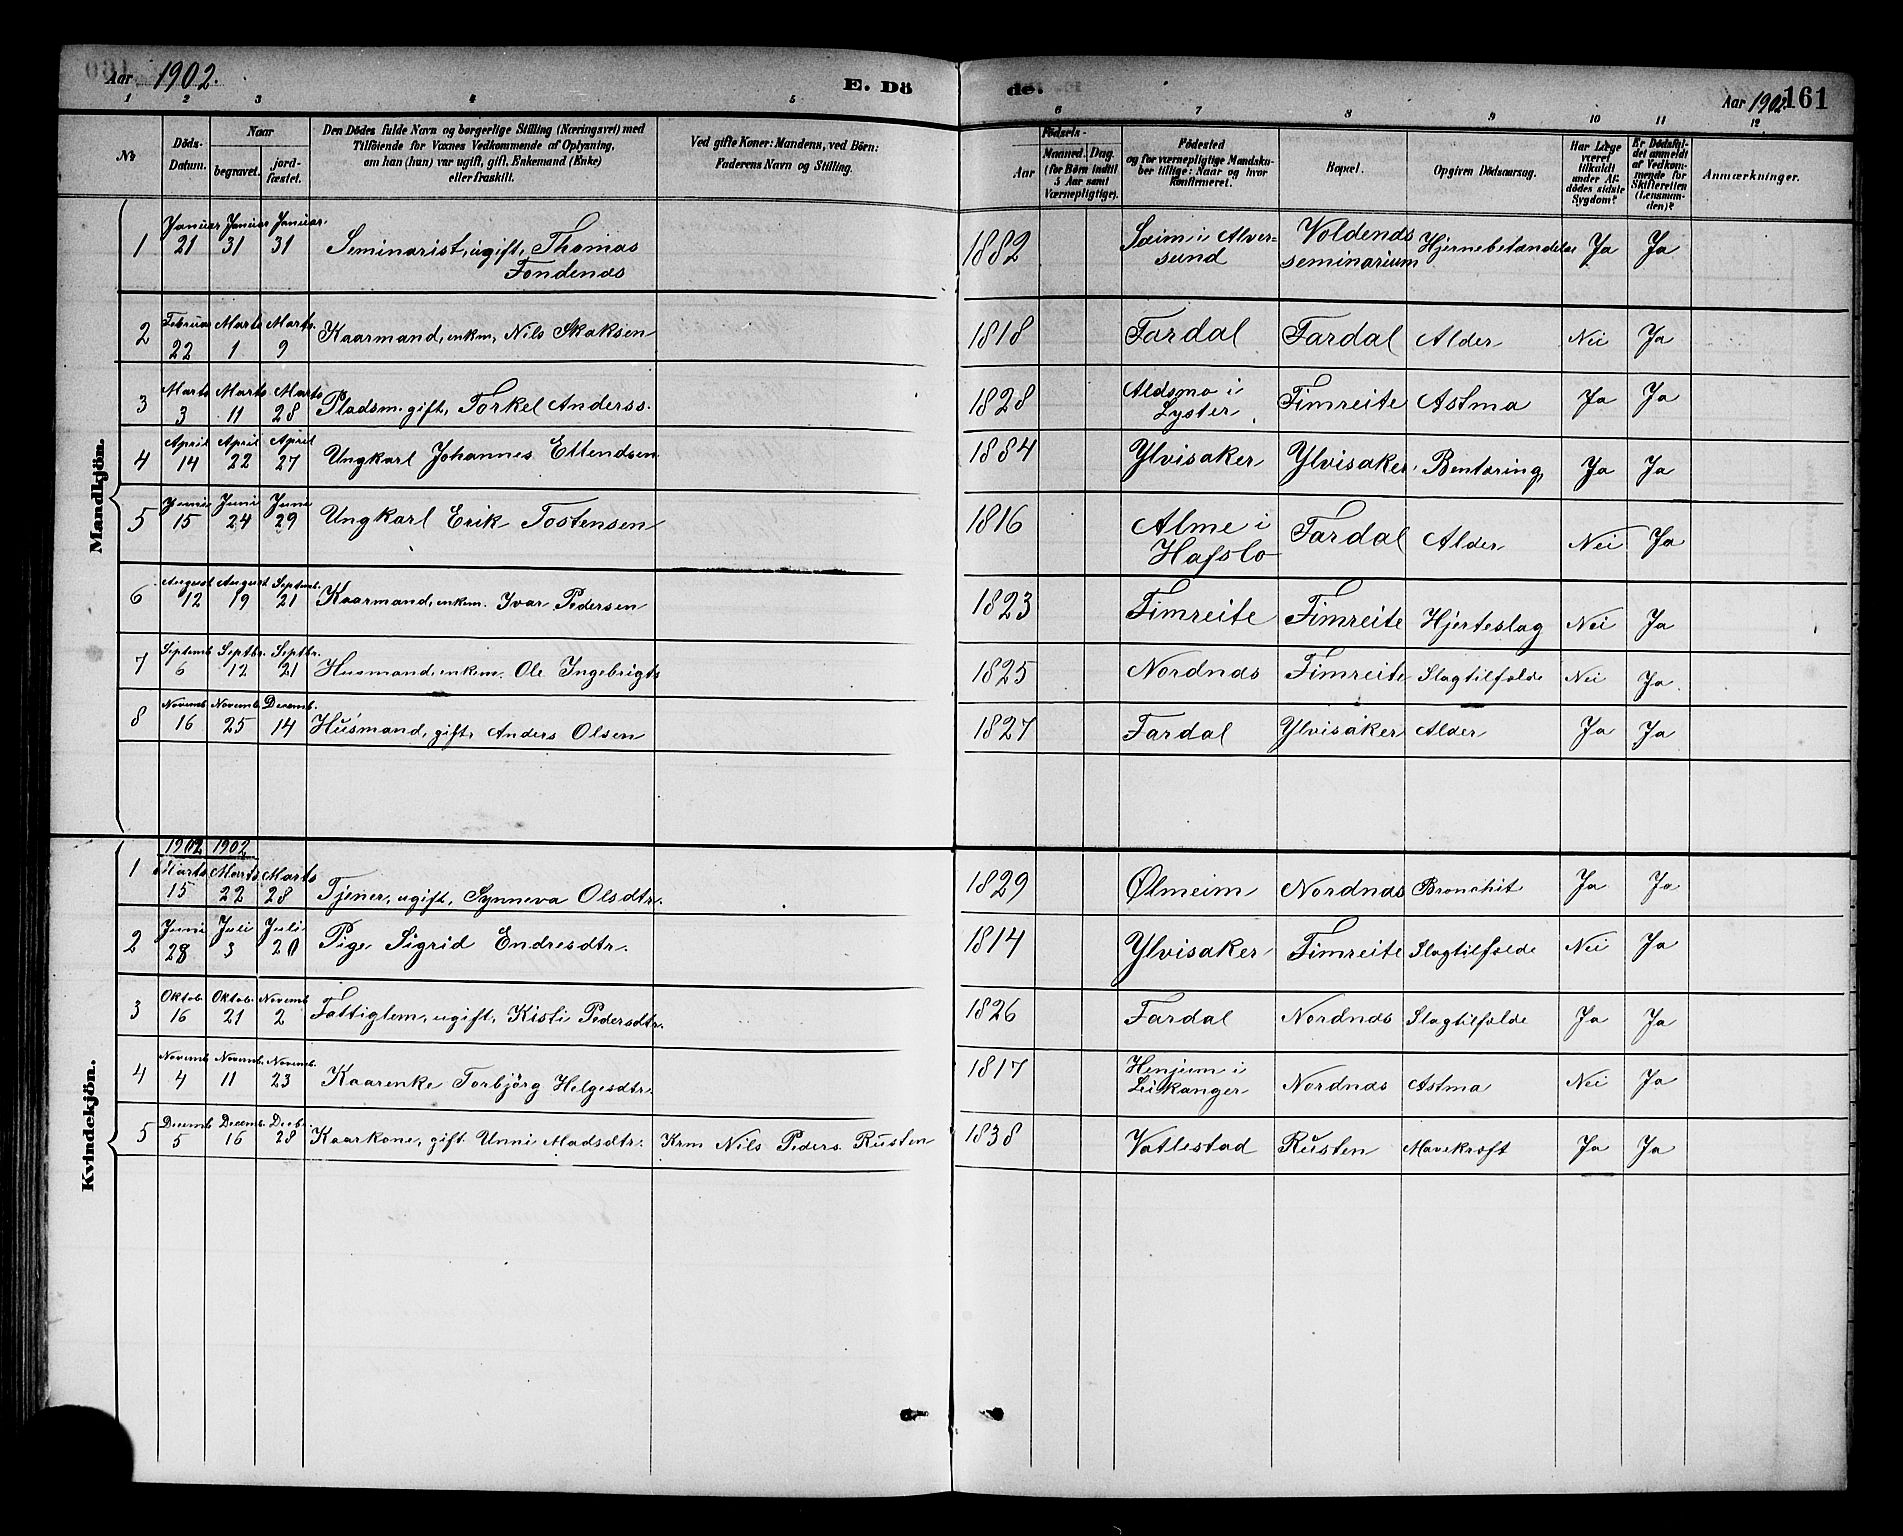 Aar 1902.
E. Dö
de.
Aar 1902.
161
1 2 3 4 5 6 7 8 9 10 11 12
No
Döds-Datum.
Naar
begravet.
jord-fæstet.
Den Dödes fulde Navn og borgerlige Stilling (Næringsvei) med
Tilföiende for Voxnes Vedkommende af Oplysning,
om han (hun) var ugift, gift, Enkemand (Enke)
eller fraskilt.
Ved gifte Koner: Mandens, ved Börn:
Faderens Navn og Stilling.
Födsels-
Aar
Maaned. Dag.
(for Börn indtil
5 Aar samt
Værnepligtige).
Födested
og for værnepligtige Mandskaber tillige: Naar og hvor
konfirmeret.
Bopæl.
Opgiven Dödsaarsag.
Har Læge
været
tilkaldt
under Afdödes sidste
Sygdom?
Er Dödsfaldet anmeldt
af Vedkommende for
Skifteretten
(Lensmanden)?
Anmærkninger.
Mandkjön.
1 Januar 21 Januar 31 Januar. 31 Seminarist, ugift, Thomas Fondenæs 1882 Sæim i Alversund Voldens seminarium Hjernebetændelse Ja Ja
2 Februar 22 Marts 1 Marts. 9 Kaarmand, enkm, Nils Skaksen 1818 Fardal Fardal Alder Nei Ja
3 Marts 3 Marts 11 Marts 28 Pladsm. gift, Torkel Anderss. 1828 Aldsmo i Lyster Fimreite Astma Ja Ja
4 April 14 April 22 April 27 Ungkarl Johannes Ellendsen 1884 Ylvisaker Ylvisaker. Bentæring Ja Ja
5 Juni 15 Juni 24 Juni 29 Ungkarl Erik Tostensen 1816 Alme i Hafslo Fardal Alder Nei Ja
6 August 12 August 19 Septemb. 21 Kaarmand, enkem. Ivar Pedersen 1823 Fimreite Fimreite Hjerteslag Nei Ja
7 Septemb 6 Septbr. 12 Septbr. 21 Husmand, enkem. Ole Ingebrigts 1825 Nordnæs Fimreite Slagtilfælde Nei Ja.
8 Novemb 16 Novemb. 25 Decemb. 14 Husmand, gift, Anders Olsen 1827 Fardal Ylvisaker Alder Ja Ja
Kvindekjön.
1902 1902
1 Marts 15 Marts 22 Marts 28 Tjener, ugift, Synneva Olsdtr. 1829 Ølmeim Nordnæs Bronchit Ja Ja
2 Juni 28 Juli 3 Juli. 20 Pige Sigrid Endresdtr. 1814 Ylvisaker Fimreite Slagtilfælde Nei Ja
3 Oktob. 16 Oktob. 21 Novemb 2 Fattiglem, ugift, Kisti Pedersdtr. 1826 Fardal Nordnæs Slagtilfælde Ja Ja
4 Novemb 4 Novemb. 11 Novemb. 23 Kaarenke Torbjörg Helgesdtr. 1817 Henjum i Leikanger Nordnæs Astma Nei Ja
5 Decemb 5 Decemb 16 Decbr 28 Kaarkone, gift. Unni Madsdtr. Krm Nils Peders. Rusten 1838 Vatlestad Rusten Mavekræft Ja Ja